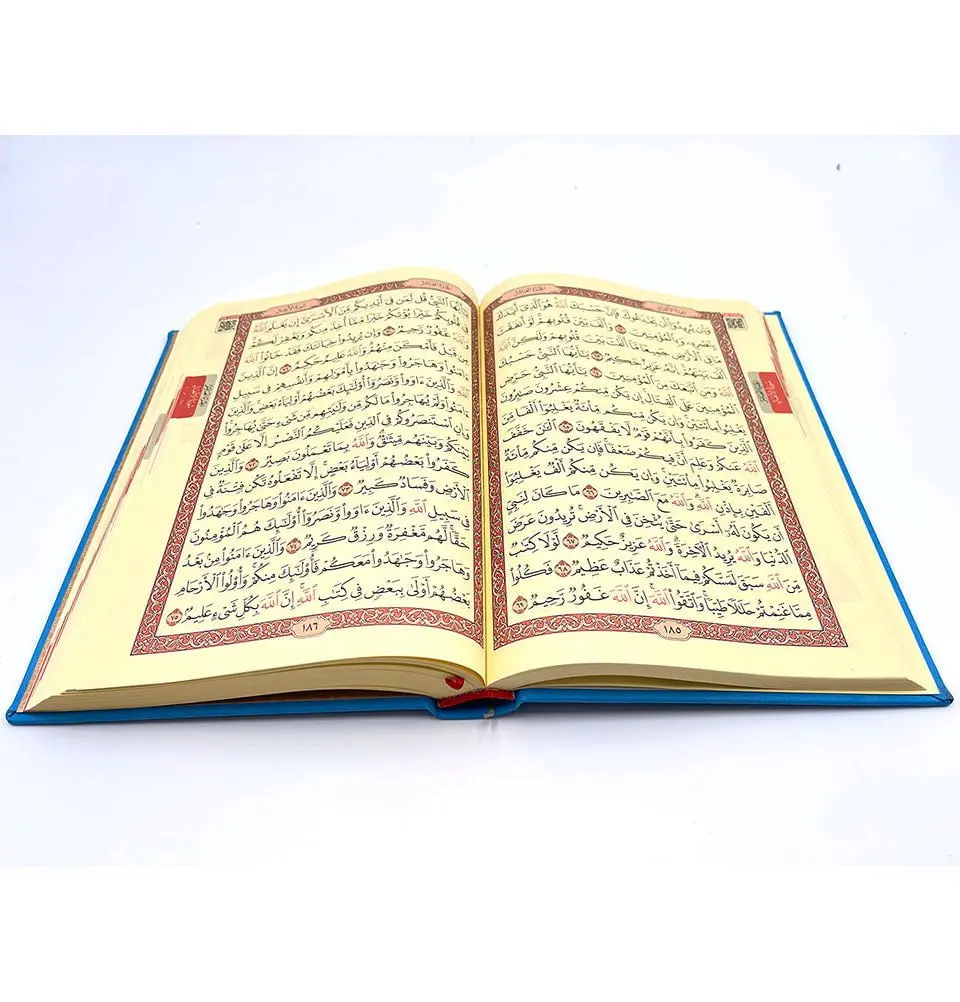 الجُزْءُ العَاشِرُ
سُورَةُ الأَنفَالِ
وَإِن يُرِيدُوٓاْ أَن يَخْدَعُوكَ فَإِنَّ حَسْبَكَ ٱللَّهُۚ هُوَ ٱلَّذِىٓ أَيَّدَكَ
بِنَصْرِهِۦ وَبِٱلْمُؤْمِنِينَ ٦٢ وَأَلَّفَ بَيْنَ قُلُوبِهِمْۚ لَوْ أَنفَقْتَ
مَا فِى ٱلْأَرْضِ جَمِيعًا مَّآ أَلَّفْتَ بَيْنَ قُلُوبِهِمْ وَلَٰكِنَّ ٱللَّهَ
أَلَّفَ بَيْنَهُمْۚ إِنَّهُۥ عَزِيزٌ حَكِيمٌ ٦٣ يَٰٓأَيُّهَا ٱلنَّبِىُّ حَسْبُكَ
ٱللَّهُ وَمَنِ ٱتَّبَعَكَ مِنَ ٱلْمُؤْمِنِينَ ٦٤ يَٰٓأَيُّهَا ٱلنَّبِىُّ حَرِّضِ
ٱلْمُؤْمِنِينَ عَلَى ٱلْقِتَالِۚ إِن يَكُن مِّنكُمْ عِشْرُونَ صَٰبِرُونَ
يَغْلِبُواْ مِاْئَتَيْنِۚ وَإِن يَكُن مِّنكُم مِّاْئَةٌ يَغْلِبُوٓاْ أَلْفًا مِّنَ
ٱلَّذِينَ كَفَرُواْ بِأَنَّهُمْ قَوْمٌ لَّا يَفْقَهُونَ ٦٥ ٱلْـَٰٔنَ خَفَّفَ
ٱللَّهُ عَنكُمْ وَعَلِمَ أَنَّ فِيكُمْ ضَعْفًاۚ فَإِن يَكُن مِّنكُم مِّاْئَةٌ
صَابِرَةٌ يَغْلِبُواْ مِاْئَتَيْنِۚ وَإِن يَكُن مِّنكُمْ أَلْفٌ يَغْلِبُوٓاْ
أَلْفَيْنِ بِإِذْنِ ٱللَّهِۗ وَٱللَّهُ مَعَ ٱلصَّٰبِرِينَ ٦٦ مَا كَانَ لِنَبِىٍّ
أَن يَكُونَ لَهُۥٓ أَسْرَىٰ حَتَّىٰ يُثْخِنَ فِى ٱلْأَرْضِۚ تُرِيدُونَ عَرَضَ
ٱلدُّنْيَا وَٱللَّهُ يُرِيدُ ٱلْءَاخِرَةَۗ وَٱللَّهُ عَزِيزٌ حَكِيمٌ ٦٧ لَّوْلَا كِتَٰبٌ
مِّنَ ٱللَّهِ سَبَقَ لَمَسَّكُمْ فِيمَآ أَخَذْتُمْ عَذَابٌ عَظِيمٌ ٦٨ فَكُلُواْ
مِمَّا غَنِمْتُمْ حَلَٰلًا طَيِّبًاۚ وَٱتَّقُواْ ٱللَّهَۚ إِنَّ ٱللَّهَ غَفُورٌ رَّحِيمٌ ٦٩
١٨٥
الجُزْءُ العَاشِرُ
سُورَةُ الأَنفَالِ
يَٰٓأَيُّهَا ٱلنَّبِىُّ قُل لِّمَن فِىٓ أَيْدِيكُم مِّنَ ٱلْأَسْرَىٰٓ إِن يَعْلَمِ ٱللَّهُ
فِى قُلُوبِكُمْ خَيْرًا يُؤْتِكُمْ خَيْرًا مِّمَّآ أُخِذَ مِنكُمْ وَيَغْفِرْ لَكُمْۗ
وَٱللَّهُ غَفُورٌ رَّحِيمٌ ٧٠ وَإِن يُرِيدُواْ خِيَانَتَكَ فَقَدْ خَانُواْ ٱللَّهَ
مِن قَبْلُ فَأَمْكَنَ مِنْهُمْۗ وَٱللَّهُ عَلِيمٌ حَكِيمٌ ٧١ إِنَّ ٱلَّذِينَ
ءَامَنُواْ وَهَاجَرُواْ وَجَٰهَدُواْ بِأَمْوَٰلِهِمْ وَأَنفُسِهِمْ فِى سَبِيلِ
ٱللَّهِ وَٱلَّذِينَ ءَاوَواْ وَّنَصَرُوٓاْ أُوْلَٰٓئِكَ بَعْضُهُمْ أَوْلِيَآءُ بَعْضٍۚ وَٱلَّذِينَ
ءَامَنُواْ وَلَمْ يُهَاجِرُواْ مَا لَكُم مِّن وَلَٰيَتِهِم مِّن شَىْءٍ حَتَّىٰ يُهَاجِرُواْۚ
وَإِنِ ٱسْتَنصَرُوكُمْ فِى ٱلدِّينِ فَعَلَيْكُمُ ٱلنَّصْرُ إِلَّا عَلَىٰ قَوْمٍۭ
بَيْنَكُمْ وَبَيْنَهُم مِّيثَٰقٌۗ وَٱللَّهُ بِمَا تَعْمَلُونَ بَصِيرٌ ٧٢ وَٱلَّذِينَ
كَفَرُواْ بَعْضُهُمْ أَوْلِيَآءُ بَعْضٍۚ إِلَّا تَفْعَلُوهُ تَكُن فِتْنَةٌ فِى
ٱلْأَرْضِ وَفَسَادٌ كَبِيرٌ ٧٣ وَٱلَّذِينَ ءَامَنُواْ وَهَاجَرُواْ وَجَٰهَدُواْ
فِى سَبِيلِ ٱللَّهِ وَٱلَّذِينَ ءَاوَواْ وَّنَصَرُوٓاْ أُوْلَٰٓئِكَ هُمُ ٱلْمُؤْمِنُونَ
حَقًّاۚ لَّهُم مَّغْفِرَةٌ وَرِزْقٌ كَرِيمٌ ٧٤ وَٱلَّذِينَ ءَامَنُواْ مِنۢ بَعْدُ
وَهَاجَرُواْ وَجَٰهَدُواْ مَعَكُمْ فَأُوْلَٰٓئِكَ مِنكُمْۚ وَأُوْلُواْ ٱلْأَرْحَامِ
بَعْضُهُمْ أَوْلَىٰ بِبَعْضٍ فِى كِتَٰبِ ٱللَّهِۗ إِنَّ ٱللَّهَ بِكُلِّ شَىْءٍ عَلِيمٌ ٧٥
١٨٦